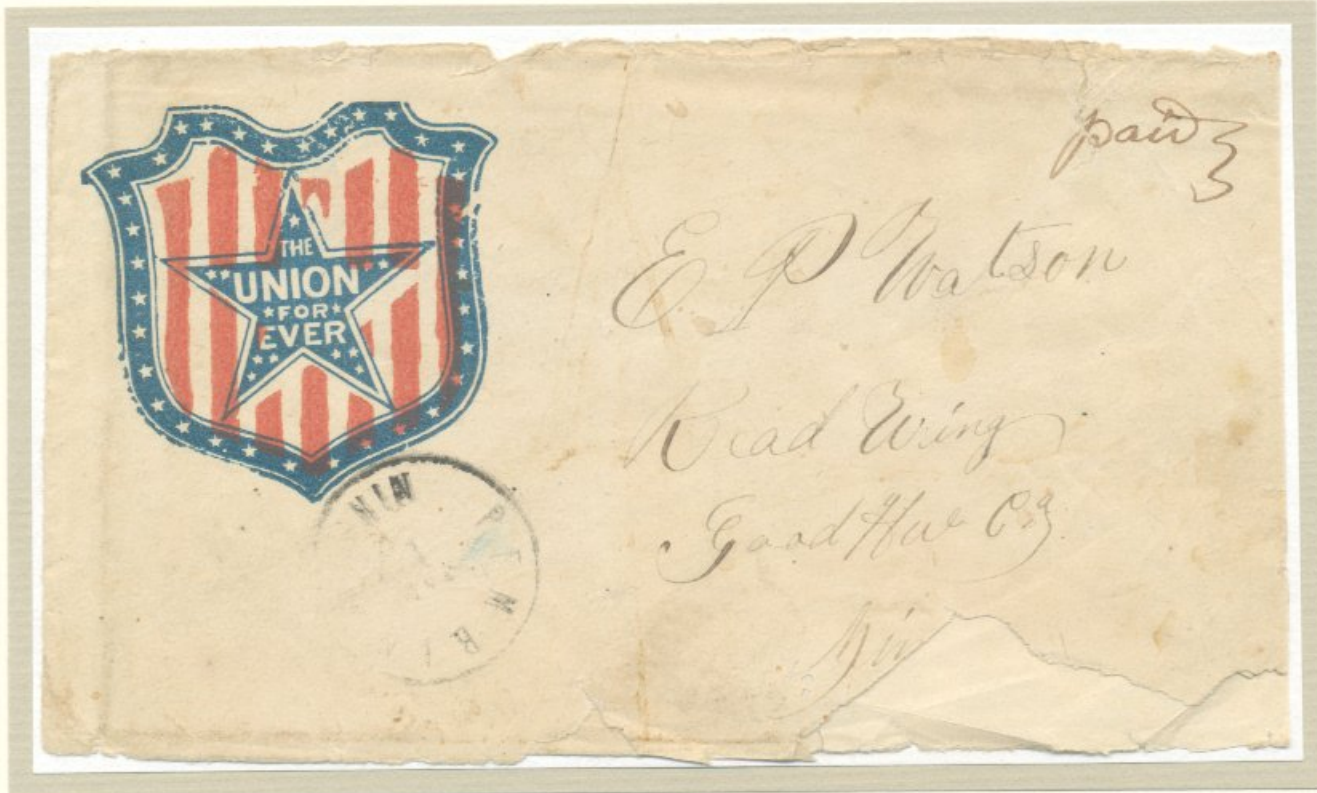 THE
UNION
FOR
EVER
paid 3
E. P Watson
Read Wring
Good Hue Cy
Min
MIN